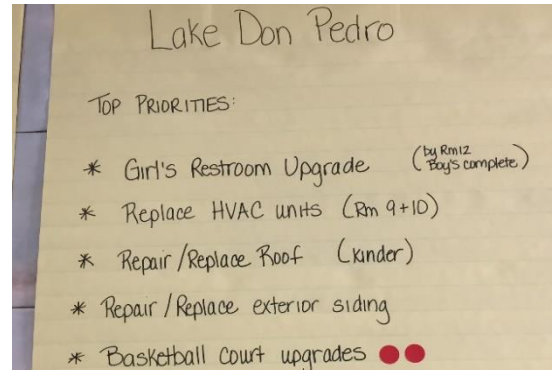 Lake Don Pedro
TOP PRIORITIES:
* Girl's Restroom Upgrade (by Rm12 Boy's complete)
* Replace HVAC units (Rm 9+10)
* Repair/Replace Roof (kinder)
* Repair/Replace exterior siding
* Basketball Court upgrades